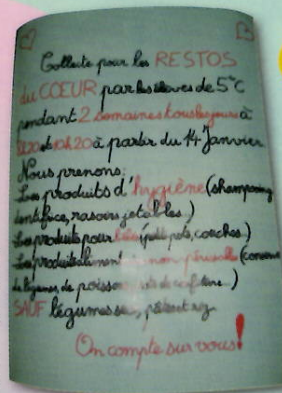 Collecte pour les RESTOS
du COEUR par les élèves de 5°C
pendant 2 semaines tous les jours à
et 10h20 à partir du 14 Janvier
Nous prenons:
Les produits d'hygiène (shampoing
dentifrice, rasoirs jetables.)
Les produits pour bébés (petits pots, couches..)
Les produits alimentaires non périssable (conserve
de légumes, de poisson, de confiture..)
SAUF légumes sec, pâtes et riz.
On compte sur vous!